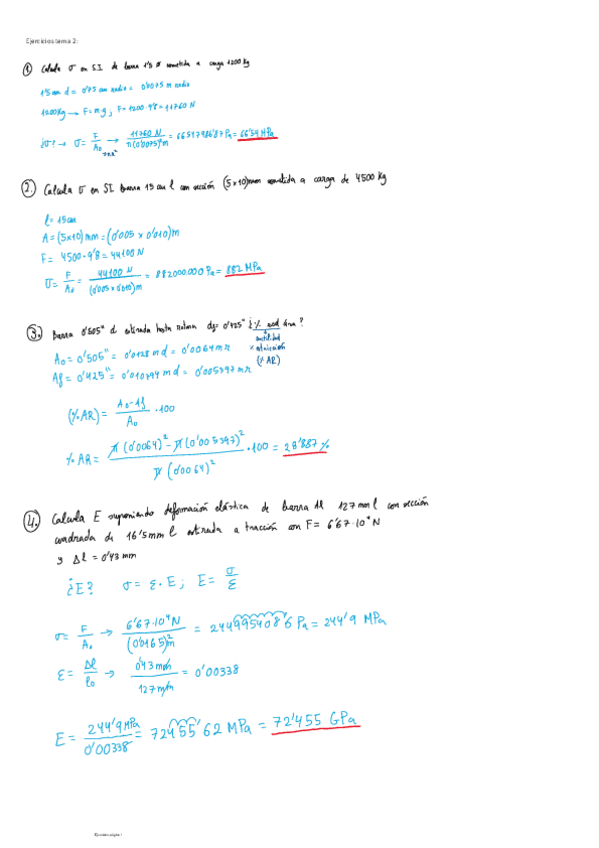 Ejercicios tema 2:
1. Calcula σ en S.I. de barra 1'5 ø sometida a carga 1200 kg
1'5 cm d = 0'75 cm radio = 0'0075 m radio
1200 Kg → F = m·g ; F = 1200 · 9'8 = 11760 N
¿σ? → σ = F/A₀ → 11760 N / π(0'0075)² = 66547986'87 Pa = 66'54 MPa
π·r²
2. Calcula σ en SI barra 15 cm l con sección (5x10)mm sometida a carga de 4500 Kg
l = 15 cm
A = (5x10) mm = (0'005 x 0'010) m
F = 4500 · 9'8 = 44100 N
σ = F/A₀ = 44100 N / (0'005 x 0'010) m = 882000.000 Pa = 882 MPa
3. Barra 0'505" d estirada hasta rotura df = 0'425" ¿% red área?
A₀ = 0'505" = 0'0128 m d = 0'0064 m r
Af = 0'425" = 0'010794 m d = 0'005397 m r
(% AR)
(% AR) = A₀ - Af / A₀ · 100
% AR = π(0'0064)² - π(0'005397)² / π(0'0064)² · 100 = 28'887 %
4. Calcula E suponiendo deformación elástica de barra Al 127 mm l con sección
cuadrada de 16'5 mm l estirada a tracción con F = 6'67·10⁴ N
y Δl = 0'43 mm
¿E? σ = ε · E ; E = σ/ε
σ = F/A₀ → 6'67·10⁴ N / (0'0165)² m = 244995408'6 Pa = 244'9 MPa
ε = Δl/l₀ → 0'43 mm / 127 mm = 0'00338
E = 244'9 MPa / 0'00338 = 72455'62 MPa = 72'455 GPa